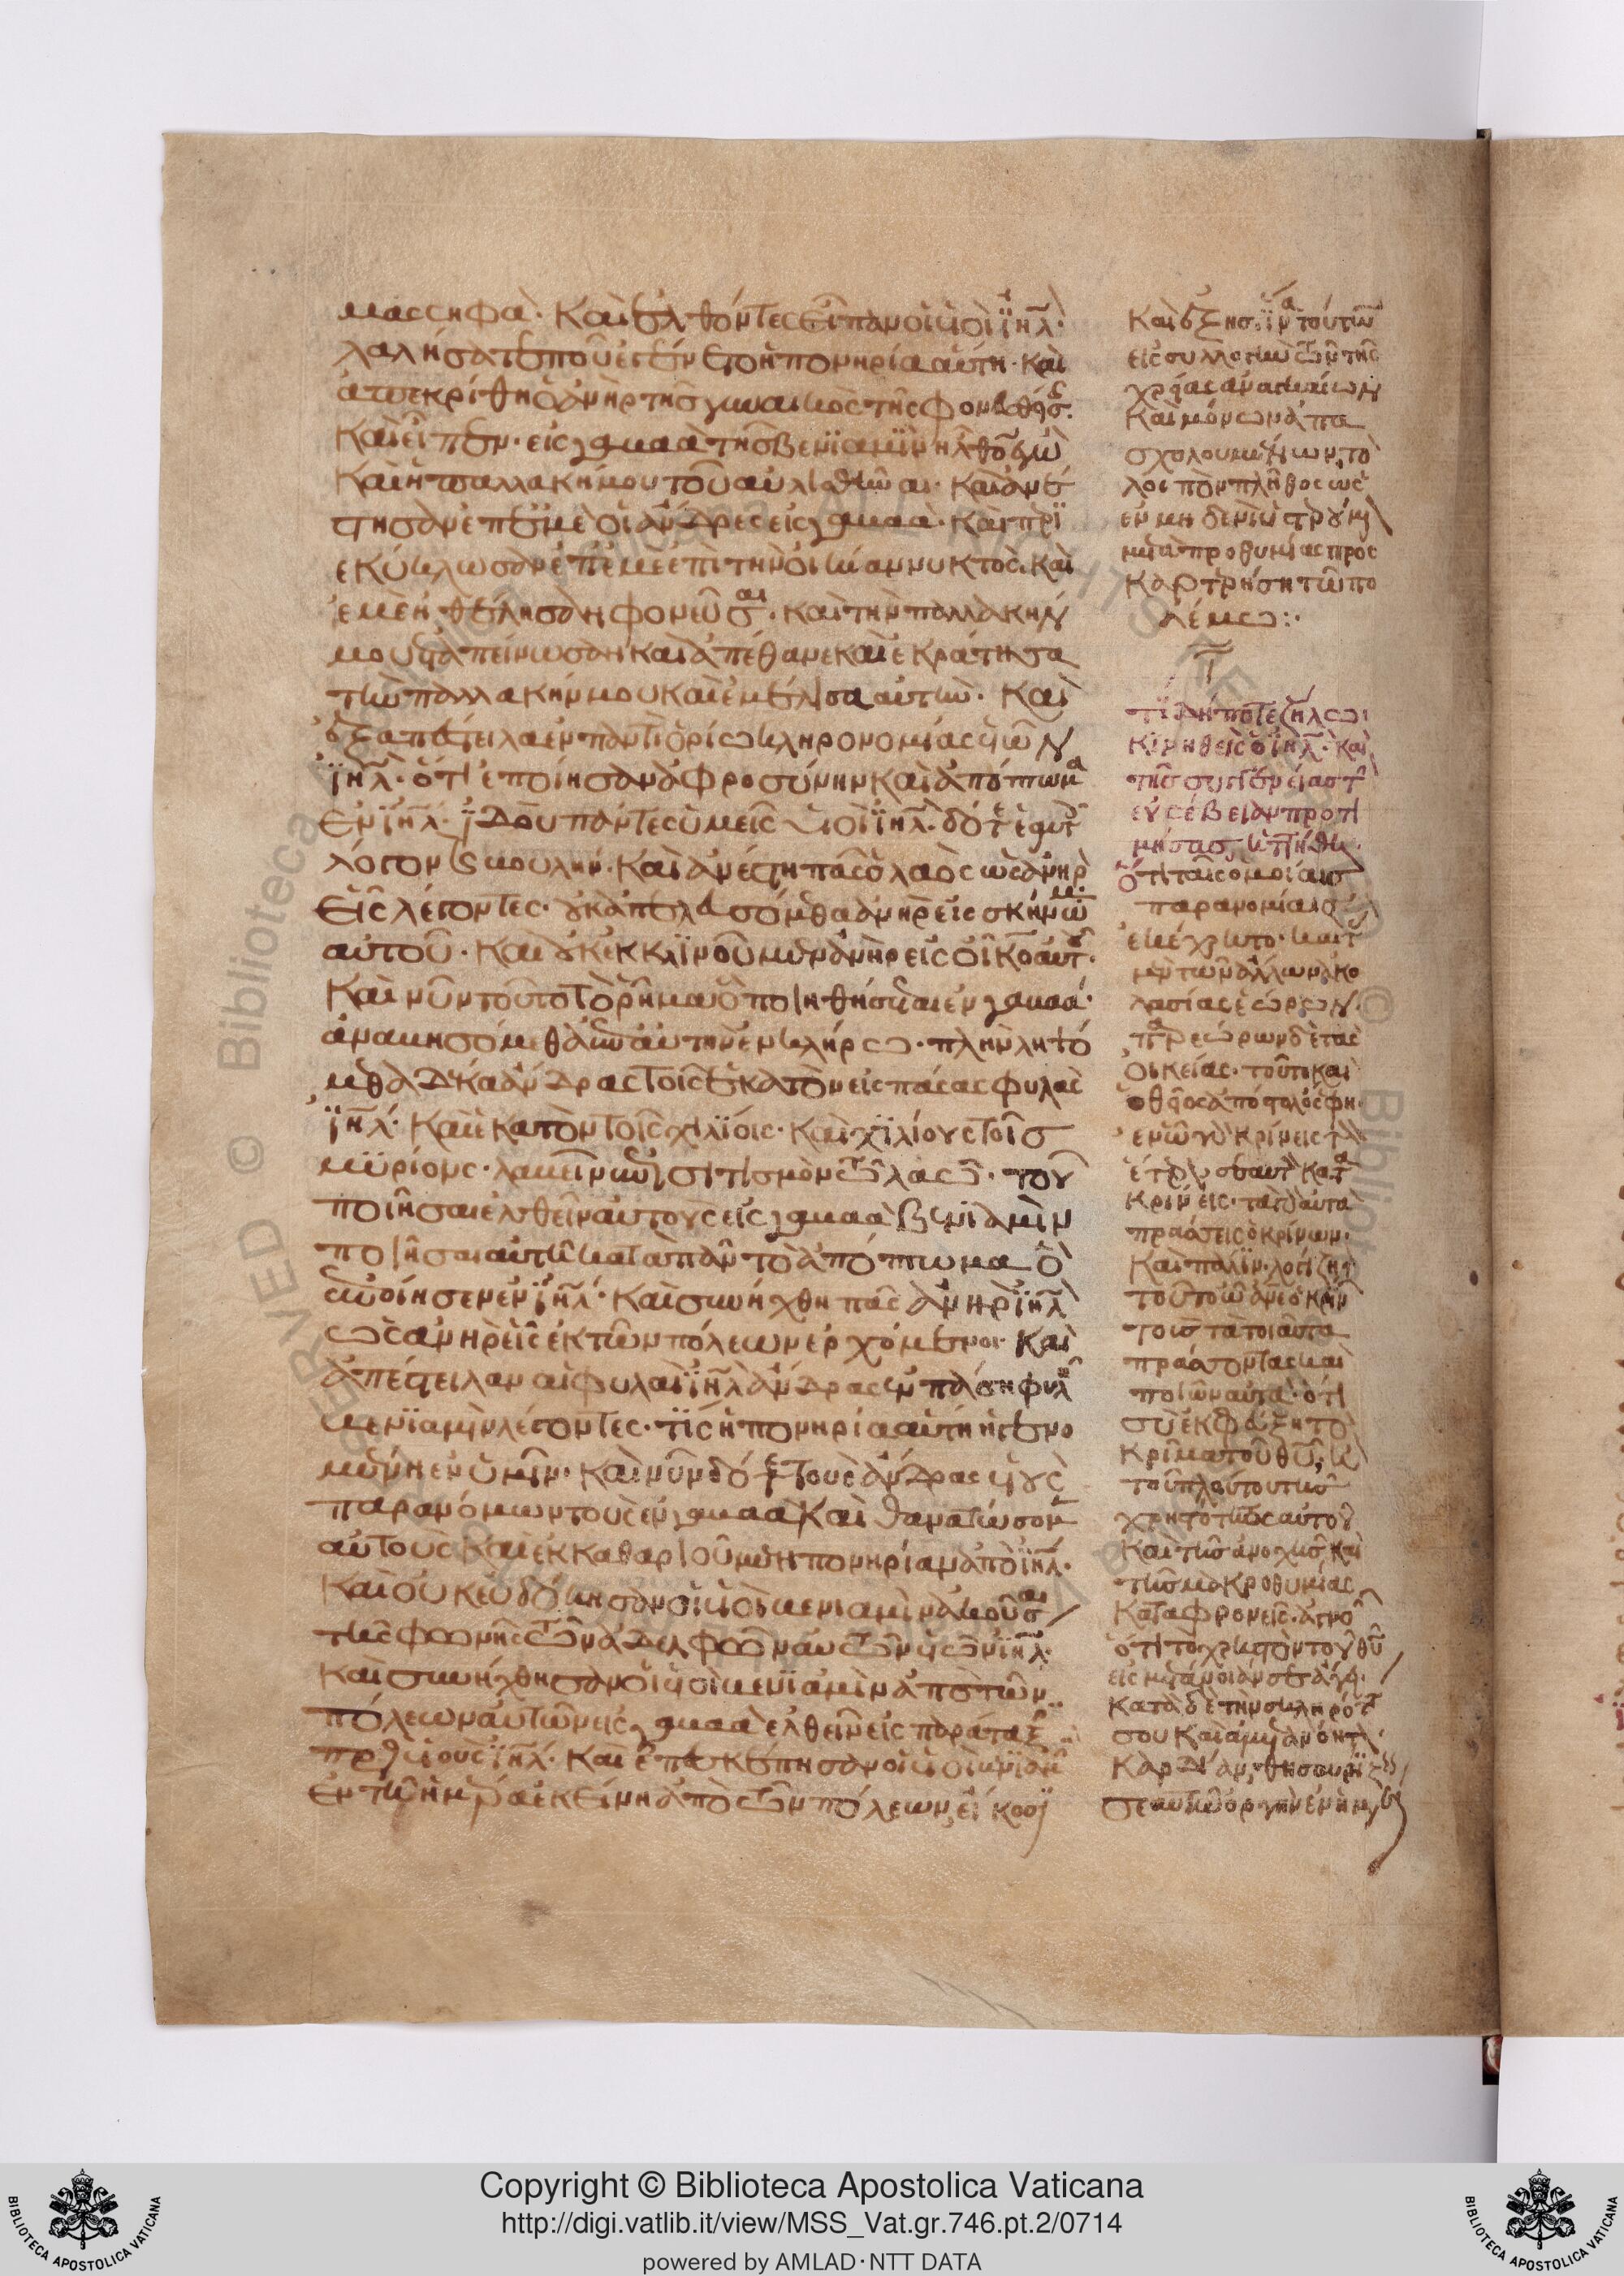 μασσηφὰ. Καὶ ἐλθόντες εἶπαν οἱ υἱοὶ ἰη̅λ.
λαλήσατε ποῦ ἐγένετο ἡ πονηρία αὕτη. καὶ
ἀπεκρίθη ὁ ἀνὴρ τῆς γυναικὸς τῆς φονευθείσ.
Καὶ εἶπεν. εἰς γαβαὰ τῆς βενϊαμὶν ἦλθον ἐγὼ
Καὶ ἡ παλλακή μου τοῦ αὐλισθῆναι. καὶ ἀνέ
στησαν ἐπ' ἐμὲ οἱ ἄνδρες εἰς γαβαὰ. καὶ περϊ
εκύκλωσαν ἐπ' ἐμὲ ἐπὶ τὴν οἰκίαν νυκτὸς. καὶ
ἐμὲ ἠθέλησαν φονεῦσαι. καὶ τὴν παλλακὴν
μου ἐταπείνωσαν καὶ ἀπέθανε καὶ ἐκράτησα
τὴν παλλακήν μου καὶ ἐμέλισα αὐτὴν. Καὶ
ἐξαπέστειλα ἐν παντὶ ὁρίω κληρονομίας υἱῶν
ἰη̅λ. ὅτι ἐποίησαν ἀφροσύνην καὶ ἀπόπτωμα
ἐν ἰη̅λ. ἰδοὺ πάντες ὑμεῖς υἱοὶ ἰη̅λ. δότε ἑαυτ
λόγον κ βουλὴν. Καὶ ἀνέστη πᾶς ὁ λαὸς ὡς ἀνὴρ
εἷς λέγοντες. οὐκ ἀπελευσόμεθα ἀνὴρ εἰς σκήνωμ
αὐτοῦ. Καὶ οὐκ ἐκκλινοῦμεν ἀνὴρ εἰς οἶκον αὐτ.
Καὶ νῦν τοῦτο τὸ ῥῆμα ὃ ποιηθήσεται ἐν γαβαά.
ἀναβησόμεθα ἐπ' αὐτὴν ἐν κλήρω. πλὴν ληψό
μεθα δέκα ἄνδρας τοῖς ἑκατὸν εἰς πάσας φυλὰς
ἰη̅λ. Καὶ ἑκατὸν τοῖς χιλϊοις. Καὶ χιλίους τοῖς
μυρίοις. λαβεῖν ἐπισιτισμὸν τῶ λαῶ. τοῦ
ποιῆσαι ἐλθεῖν αὐτοὺς εἰς γαβαὰ βενϊαμὶν
ποιῆσαι αὐτῆ κατὰ πᾶν τὸ ἀπόπτωμα ὃ
ἐποίησεν ἐν ἰη̅λ. Καὶ συνήχθη πᾶς ἀνὴρ ἰη̅λ
ὡς ἀνὴρ εἷς ἐκ τῶν πόλεων ἐρχόμενοι. Καὶ
ἀπέστειλαν αἱ φυλαὶ ἰη̅λ ἄνδρας ἐν πάση φυλῆ
βενϊαμὶν λέγοντες. τίς ἡ πονηρία αὕτη ἡ γενο
μένη ἐν ὑμῖν. Καὶ νῦν δότε τοὺς ἄνδρας υἱοὺς
παρανόμων τοὺς ἐν γαβαὰ Καὶ θανατώσομ
αὐτοὺς καὶ ἐκκαθαριοῦμεν πονηρίαν ἀπὸ ἰη̅λ.
Καὶ οὐκ εὐδόκησαν οἱ υἱοὶ βενιαμὶν ἀκοῦσαι
τῆς φωνῆς τῶν ἀδελφῶν αὐτῶν υἱῶν ἰη̅λ.
Καὶ συνήχθησαν οἱ υἱοὶ βενϊαμὶν ἀπὸ τῶν
πόλεων αὐτῶν εἰς γαβαὰ ἐλθεῖν εἰς παράταξ
πρὸς υἱοὺς ἰη̅λ. Καὶ ἐπεσκέπησαν οἱ υἱοὶ βενϊαμὶ
ἐν τῆ ἡμέρα ἐκείνη ἀπὸ τῶν πόλεων, εἴκοσι
εἰς συλλογὴν τῶν τῆς
χρείας ἀναγκαίων
Καὶ μόνων ἀπα
σχολουμένων, τὸ
λοιπὸν πλῆθος ὡς
μετὰ προθυμίας προσ
καρτερήση τῶ πο
λέμω:
Τί δήποτε ζήλω
κινηθεὶς ὁ ἰη̅λ. καὶ
τῆς συγγενείας τ
εὐσέβειαν προτι
μήσας, ἡττήθη.
Ὅτι ταῖς ὁμοίαις
παρανομίαις
οἰκείας. τοῦτο καὶ
ὁ θεῖος ἀπόστολός φη.
ἐν ᾧ γὰρ κρίνεις τ
κρίνεις. τὰ γὰρ αὐτὰ
πράσσεις ὁ κρίνων.
Καὶ πάλιν. λογίζη
τοῦτο ὦ ἄνε ὁ κρίν
τοὺς τὰ τοιαῦτα
πράσσοντας καὶ
ποιῶν αὐτά. ὅτι
σὺ ἐκφεύξη τὸ
κρίμα τοῦ θυ̅, ἢ
τοῦ πλούτου τῆς
χρηστότητος αὐτοῦ
καὶ τῆς ἀνοχῆς καὶ
τῆς μακροθυμίας
καταφρονεῖς. ἀγνο
ὅτι τὸ χρηστὸν τοῦ θυ̅
εἰς μετάνοιάν σε ἄγει.
κατὰ δὲ τὴν σκληρότ
σου καὶ ἀμετανόητ
καρδίαν, θησαυρίζεις
σεαυτῶ ὀργὴν ἐν ἡμέρα